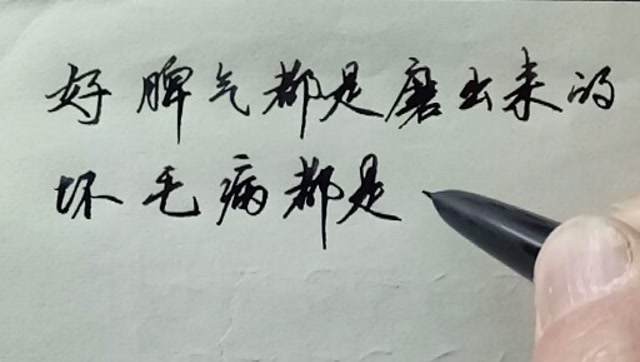 好脾气都是磨出来的
坏毛病都是